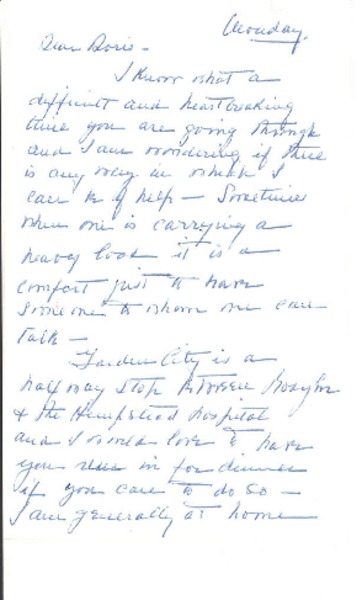 Monday.
Dear Doris -
I know what a
difficult and heartbreaking
time you are going through
and I am wondering if there
is any way in which I
can be of help - Sometimes
when one is carrying a
heavy load it is a
comfort just to have
someone to whom one can
talk -
Garden City is a
half way stop between Roslyn
& the Hempstead hospital
and I would love to have
you in for dinner
if you care to do so -
I am generally at home